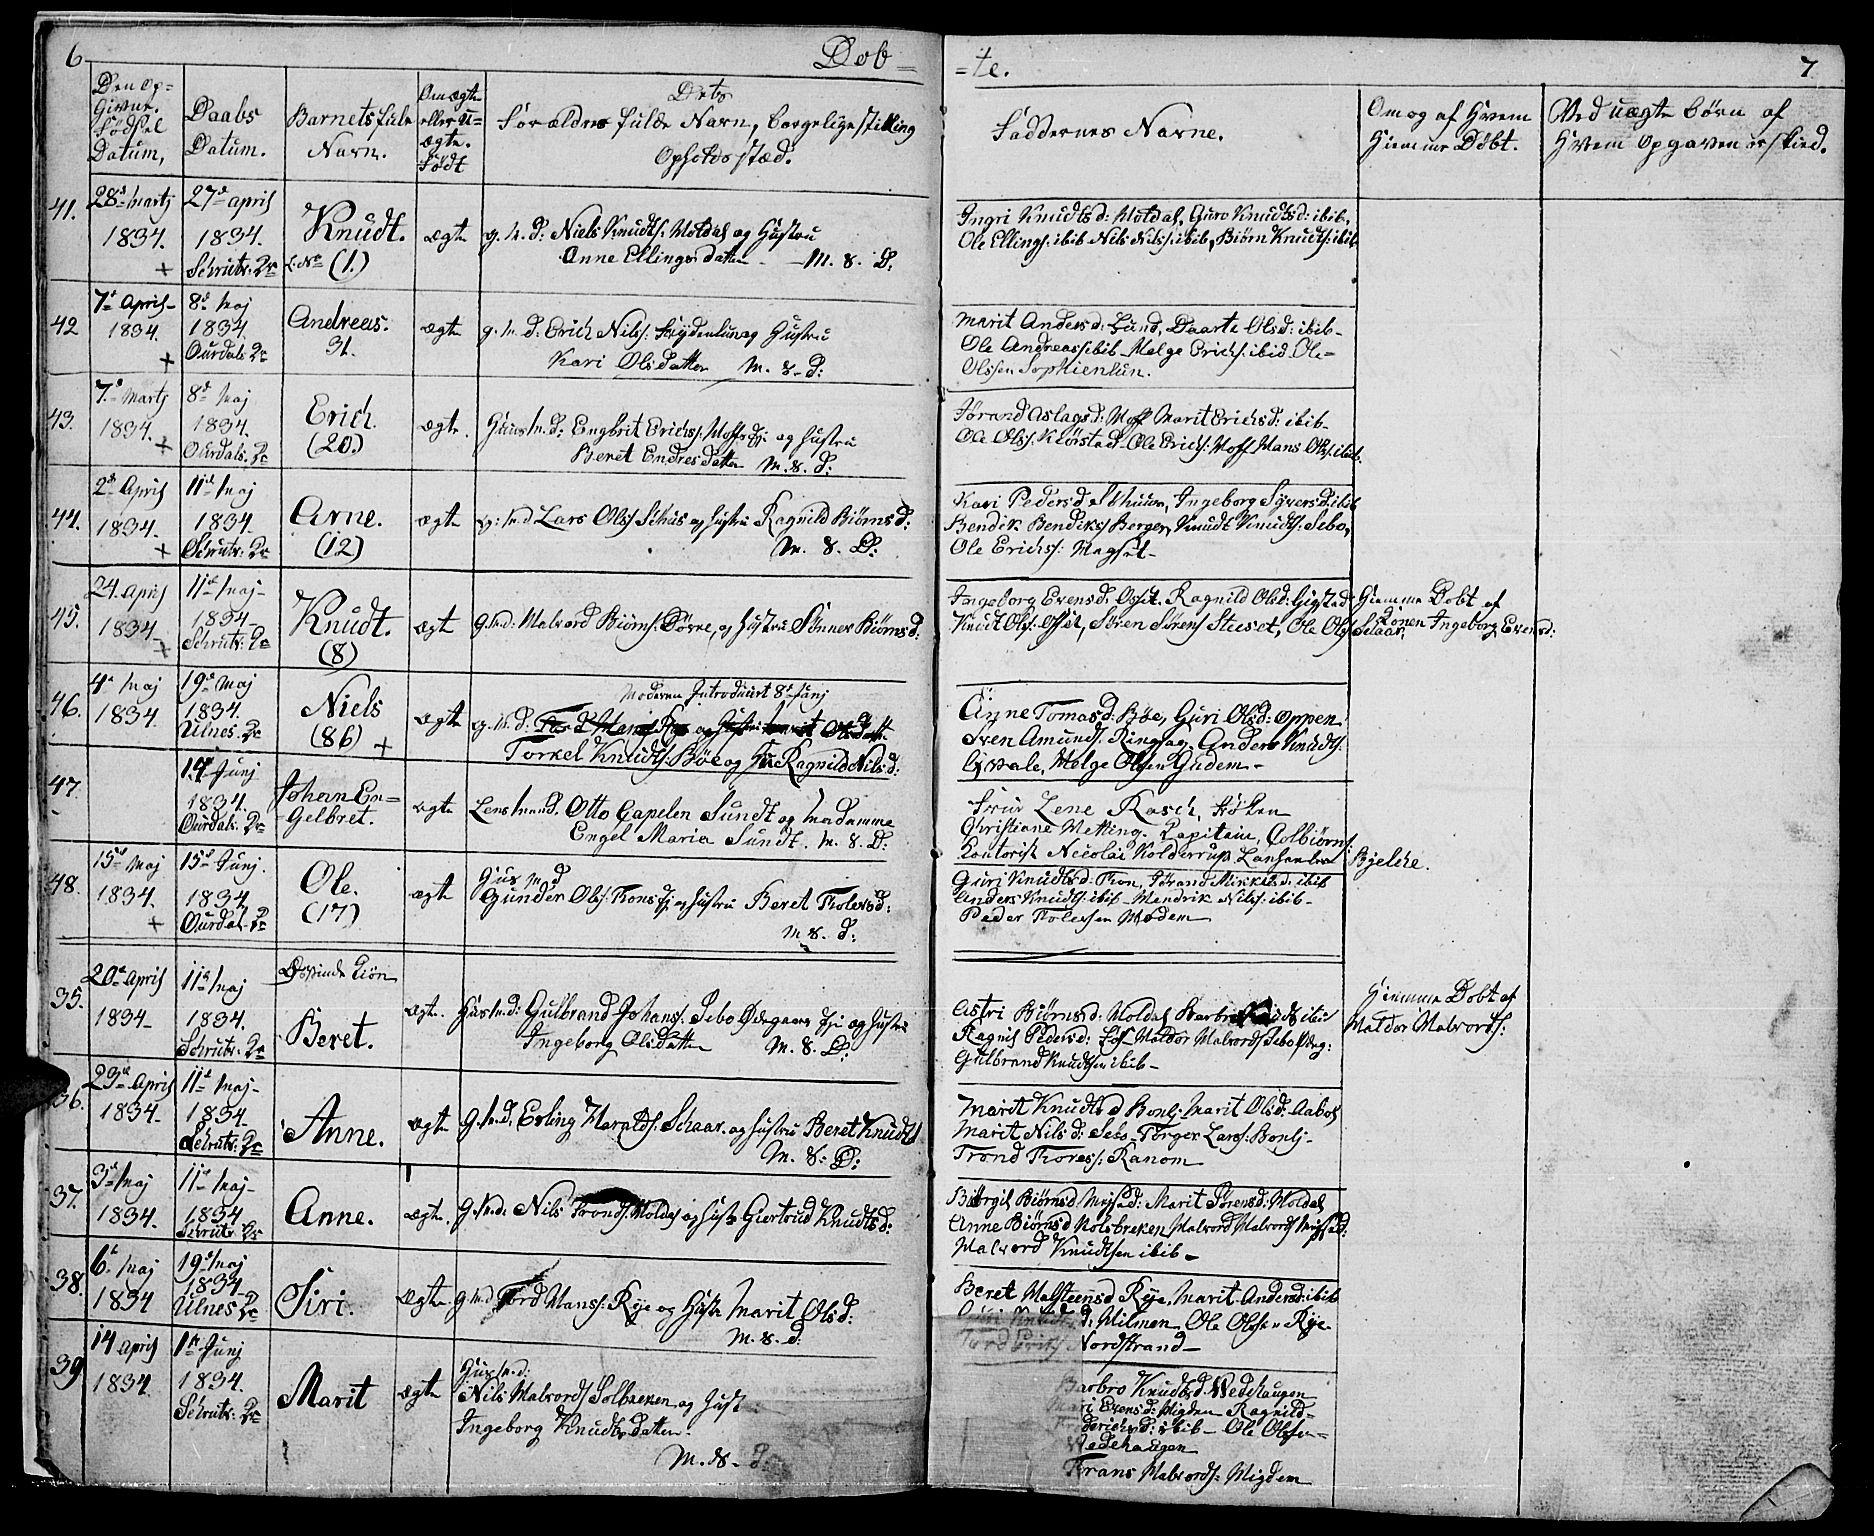 6
Døb-
-te.
7
Den op-
givne
Fødsel
Datum,
Daabs
Datum.
Barnets fulde
Navn.
Om ægte
eller U-
ægte.
Født
Dets
Forældres fulde Navn, borgelige stilling
Opholdsstæd.
Faddernes Navne.
Om og af Hvem
Hiemme Døbt.
Ved uægte børn af
Hvem Opgaven er skied.
41.
28de Martj
1834.
+
27de april
1834.
Schrutv: K
Knudt.
L. No (1.)
ægte
g. M. d: Niels Knudts: Moldal og Hustru
Anne Ellingsdatter - M. 8. D:
Ingri Knudtsd: Moldal, Guro Knudtsd: ibid.
Ole Ellings: ibid Nils Nils: ibid, Biørn Knudts: ibid
42
7de April-
1834.
+
8de Maj
1834.
Ourdals K
Andreas.
31.
ægte
g. M. d: Erich Nils: Frydenlun og Hustru
Kari Olsdatter M. 8. d:
Marit Andersd: Lund, Daarte Olsd: ibid-
Ole Andreass: ibid - Helge Erichs: ibid Ole-
Olssen Sophienlun.
43.
7de Martj
1834.
+
8de Maj
1834.
Ourdals. K
Erich
(20)
ægte.
Huusm. d: Engbrit Erichs: Hoffsej: og Hustru
Beret Endresdatter M. 8. d:
Jørand Aslagsd: Hoff Marit Erichsd: ibid-
Ole Ols: Kiørstad - Ole Erichs: Hoff Hans Ols: ibid.
44.
2de April
1834.
+
11te Maj
1834.
Schrutv: K
Arne.
(12)
ægte
g: M. d Lars Ols: Sehus og Hustru Ragnild Biørnsd:
M. 8. D:
Kari Pedersd: Ingeborg Syversd: ibid
Bendik Bendiks: Berger, Knudt Knudts: Sebo,
Ole Erichs: Magset-
45.
24. April
1834-
+
11te Maj-
1834-
Schrutv: K
Knudt.
(8)
ægt
g. M. d: Halvord Biørns: Børre, og Hustru Sønnev Biørnsd:
Ingeborg Evensd: Ragnild Olsd: Gigstad
Knudt Ols: Sören Sörens: Steeset, Ole Ols: Selaar.
Hiemme Døbt af
Konen Ingeborg Evensd:
46.
4de Maj
1834.
19de Maj
1834.
Ulnes. K
Niels
(86) +
ægte
Moderen Introduceret 8de Junj
g. M. d:
Torkel Knudts: Bøe og Hu Ragnild Nilsd:
Anne Tomasd: Bøe, Guri Olsd: Oppen
Sven Amunds: Ringsag - Anders Knudts:
Qvale, Helge Olsen Gudem-
47.
14 Junj
1834.
Ourdals. K
Johan En-
-gelbret.
ægte
Lensmand. Otto Capelen Sundt og Madamme
Engel Maria Sundt. M. 8. D:
Frue Lene Rasch, Frøken
Christiane Metting. Kapitain, Colbiørns:
Kontorist Nicolai Kolderrup Landhandler
Bjelche.
48.
15de Maj
1834.
+
15de Junj.
1834.
Ourdal. K
Ole.
(17)
ægt
Hus M. d
Gunder Ols: Fons ej: og Hustru Beret Tholevsd:
M. 8. d:
Guri Knudtsd: Fon, Jørand Mikkelsd: ibid
Anders Knudts: ibid - Hendrik Nils: ibid-
Peder Tholevsen Modem
35.
20de April
1834-
11te Maj
1834.
Schrutv: K
Qvinde Kiøn
Beret.
ægte.
Husm. d: Gulbrand Johans: Sebo Ødegaard Ej: og Hustru
Ingeborg Olsdatter M. 8. D:
Astri Biørnsd: Moldal Barbro ibid
Ragnil Pedersd: Haldor Halvords: Sebo Ødeg:
Gulbrand Knudtsen ibid-
Hiemme Døbt af
Haldor Halvords:
36.
29de April
1834-
11te Maj-
1834-
Schrutv: K
Anne.
ægte
g. M. d: Erling Haralds: Schaar. og Hustru Beret Knudtsd
M. 8: D:
Marit Knudtsd Bonli: Marit Olsd: Aabol
Marit Nilsd: Sebo - Torger Lars: Bonlj-
Trond Thores: Ranom
37.
3de Maj
1834.
11te Maj-
1834
Schrutv: K
Anne.
ægte.
g. M. d: Nils Tronds: Moldal og Hustr Giertrud Knudtsd:
Børgit Biørnsd: Marit Sørensd: Moldal
Anne Biørnsd Holsbrekken Halvord Halvords:
Halvord Knudtsen ibid-
38.
6te Maj
1834
19de Maj
1834-
Ulnes K
Siri.
Ægte.
g. M. d Tord Hans: Rye og Hustr Marit Olsd:
M. 8. d:
Beret Halsteensd Rye, Marit Andersd: ibid
Guri Knudtsd: Hilmen Ole Olssen Rye-
Tord Erits: Nordstrand-
39
14 April
1834
1te Junj
1834.
Schrutv: K
Marit
ægte
Husm. d:
Nils Halvords: Solbrekken og Hust
Ingeborg Knudtsdatter.
M. 8. d.
Barbro Knudtsd: Wedehaugen
Mari Evensd: Migden Ragnild-
Frederichsd: ibid - Ole Olssen-
Wedehaugen
Frans Halvords: Migdem